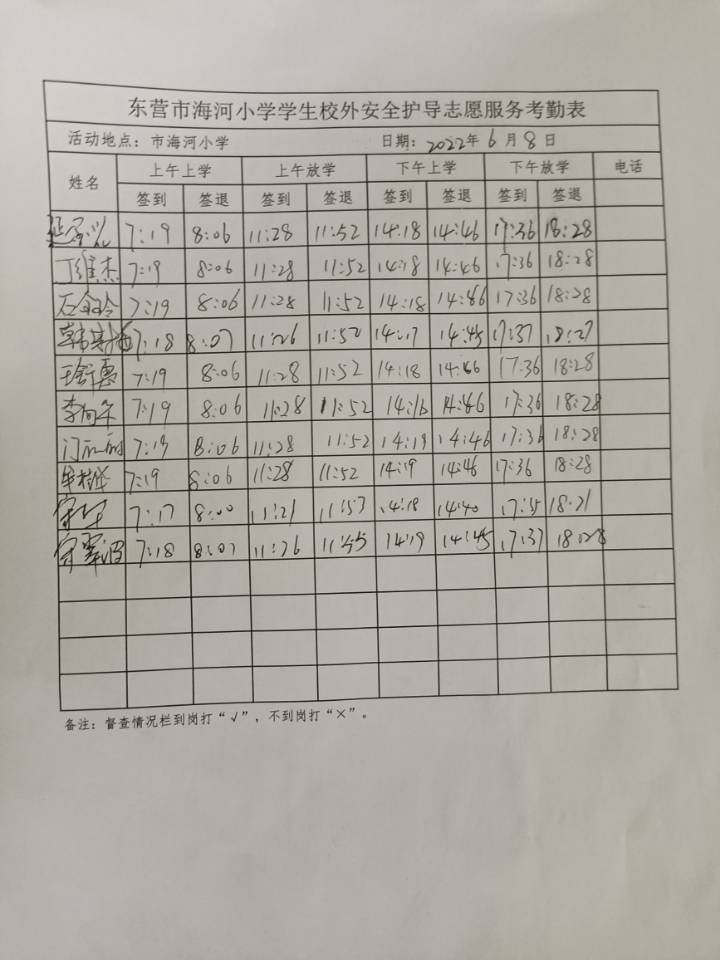 东营市海河小学学生校外安全护导志愿服务考勤表
活动地点：市海河小学 日期：2022年6月8日
姓名 上午上学 上午放学 下午上学 下午放学 电话
签到 签退 签到 签退 签到 签退 签到 签退
7:19 8:06 11:28 11:52 14:18 14:46 17:36 18:28
丁维杰 7:19 8:06 11:28 11:52 14:18 14:46 17:36 18:28
7:19 8:06 11:28 11:52 14:18 14:46 17:36 18:28
7:18 8:07 11:26 11:52 14:17 14:45 17:37 18:27
7:19 8:06 11:28 11:52 14:18 14:46 17:36 18:28
7:19 8:06 11:28 11:52 14:16 14:46 17:36 18:28
门丽丽 7:19 8:06 11:28 11:52 14:19 14:46 17:36 18:28
7:19 8:06 11:28 11:52 14:19 14:46 17:36 18:28
7:17 8:00 11:21 11:57 14:18 14:40 17:35 18:21
7:18 8:07 11:26 11:55 14:19 14:45 17:37 18:28
备注：督查情况栏到岗打“√”，不到岗打“×”。